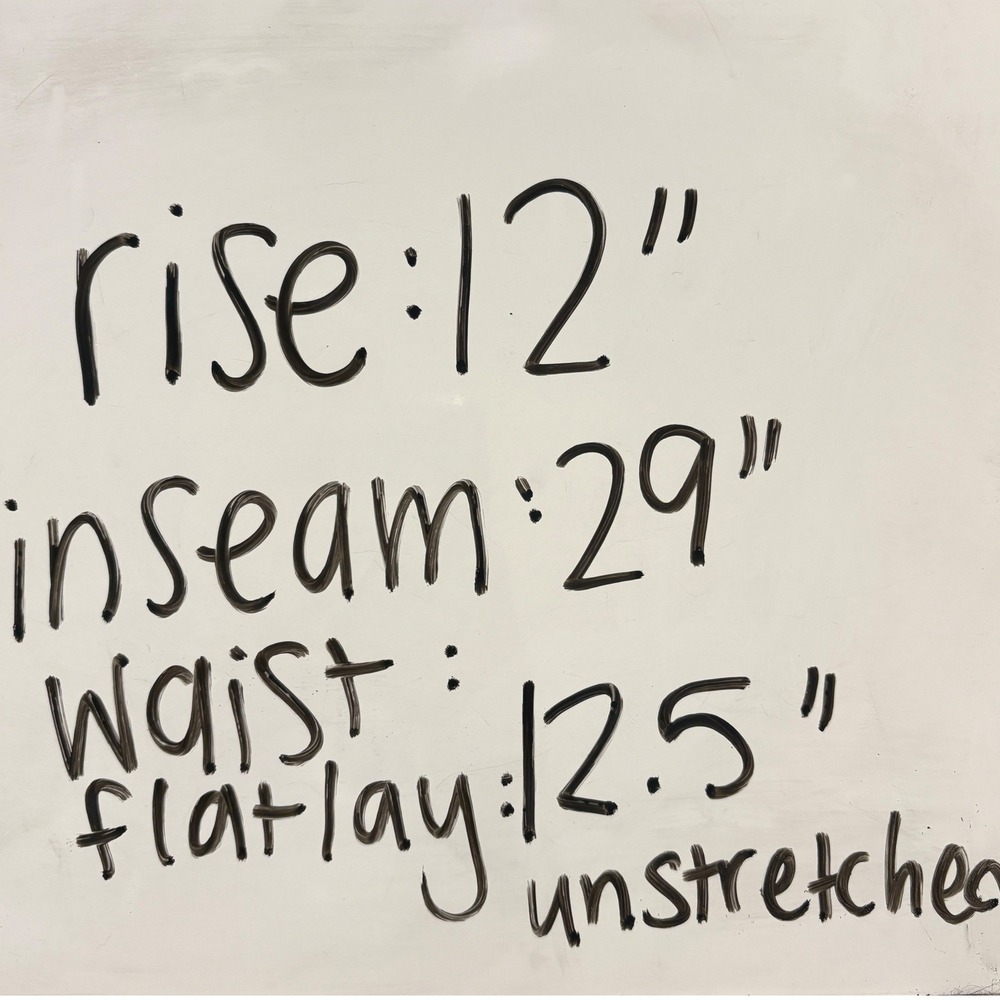 rise:12"
inseam:29"
waist :
flatlay:12.5"
unstretched